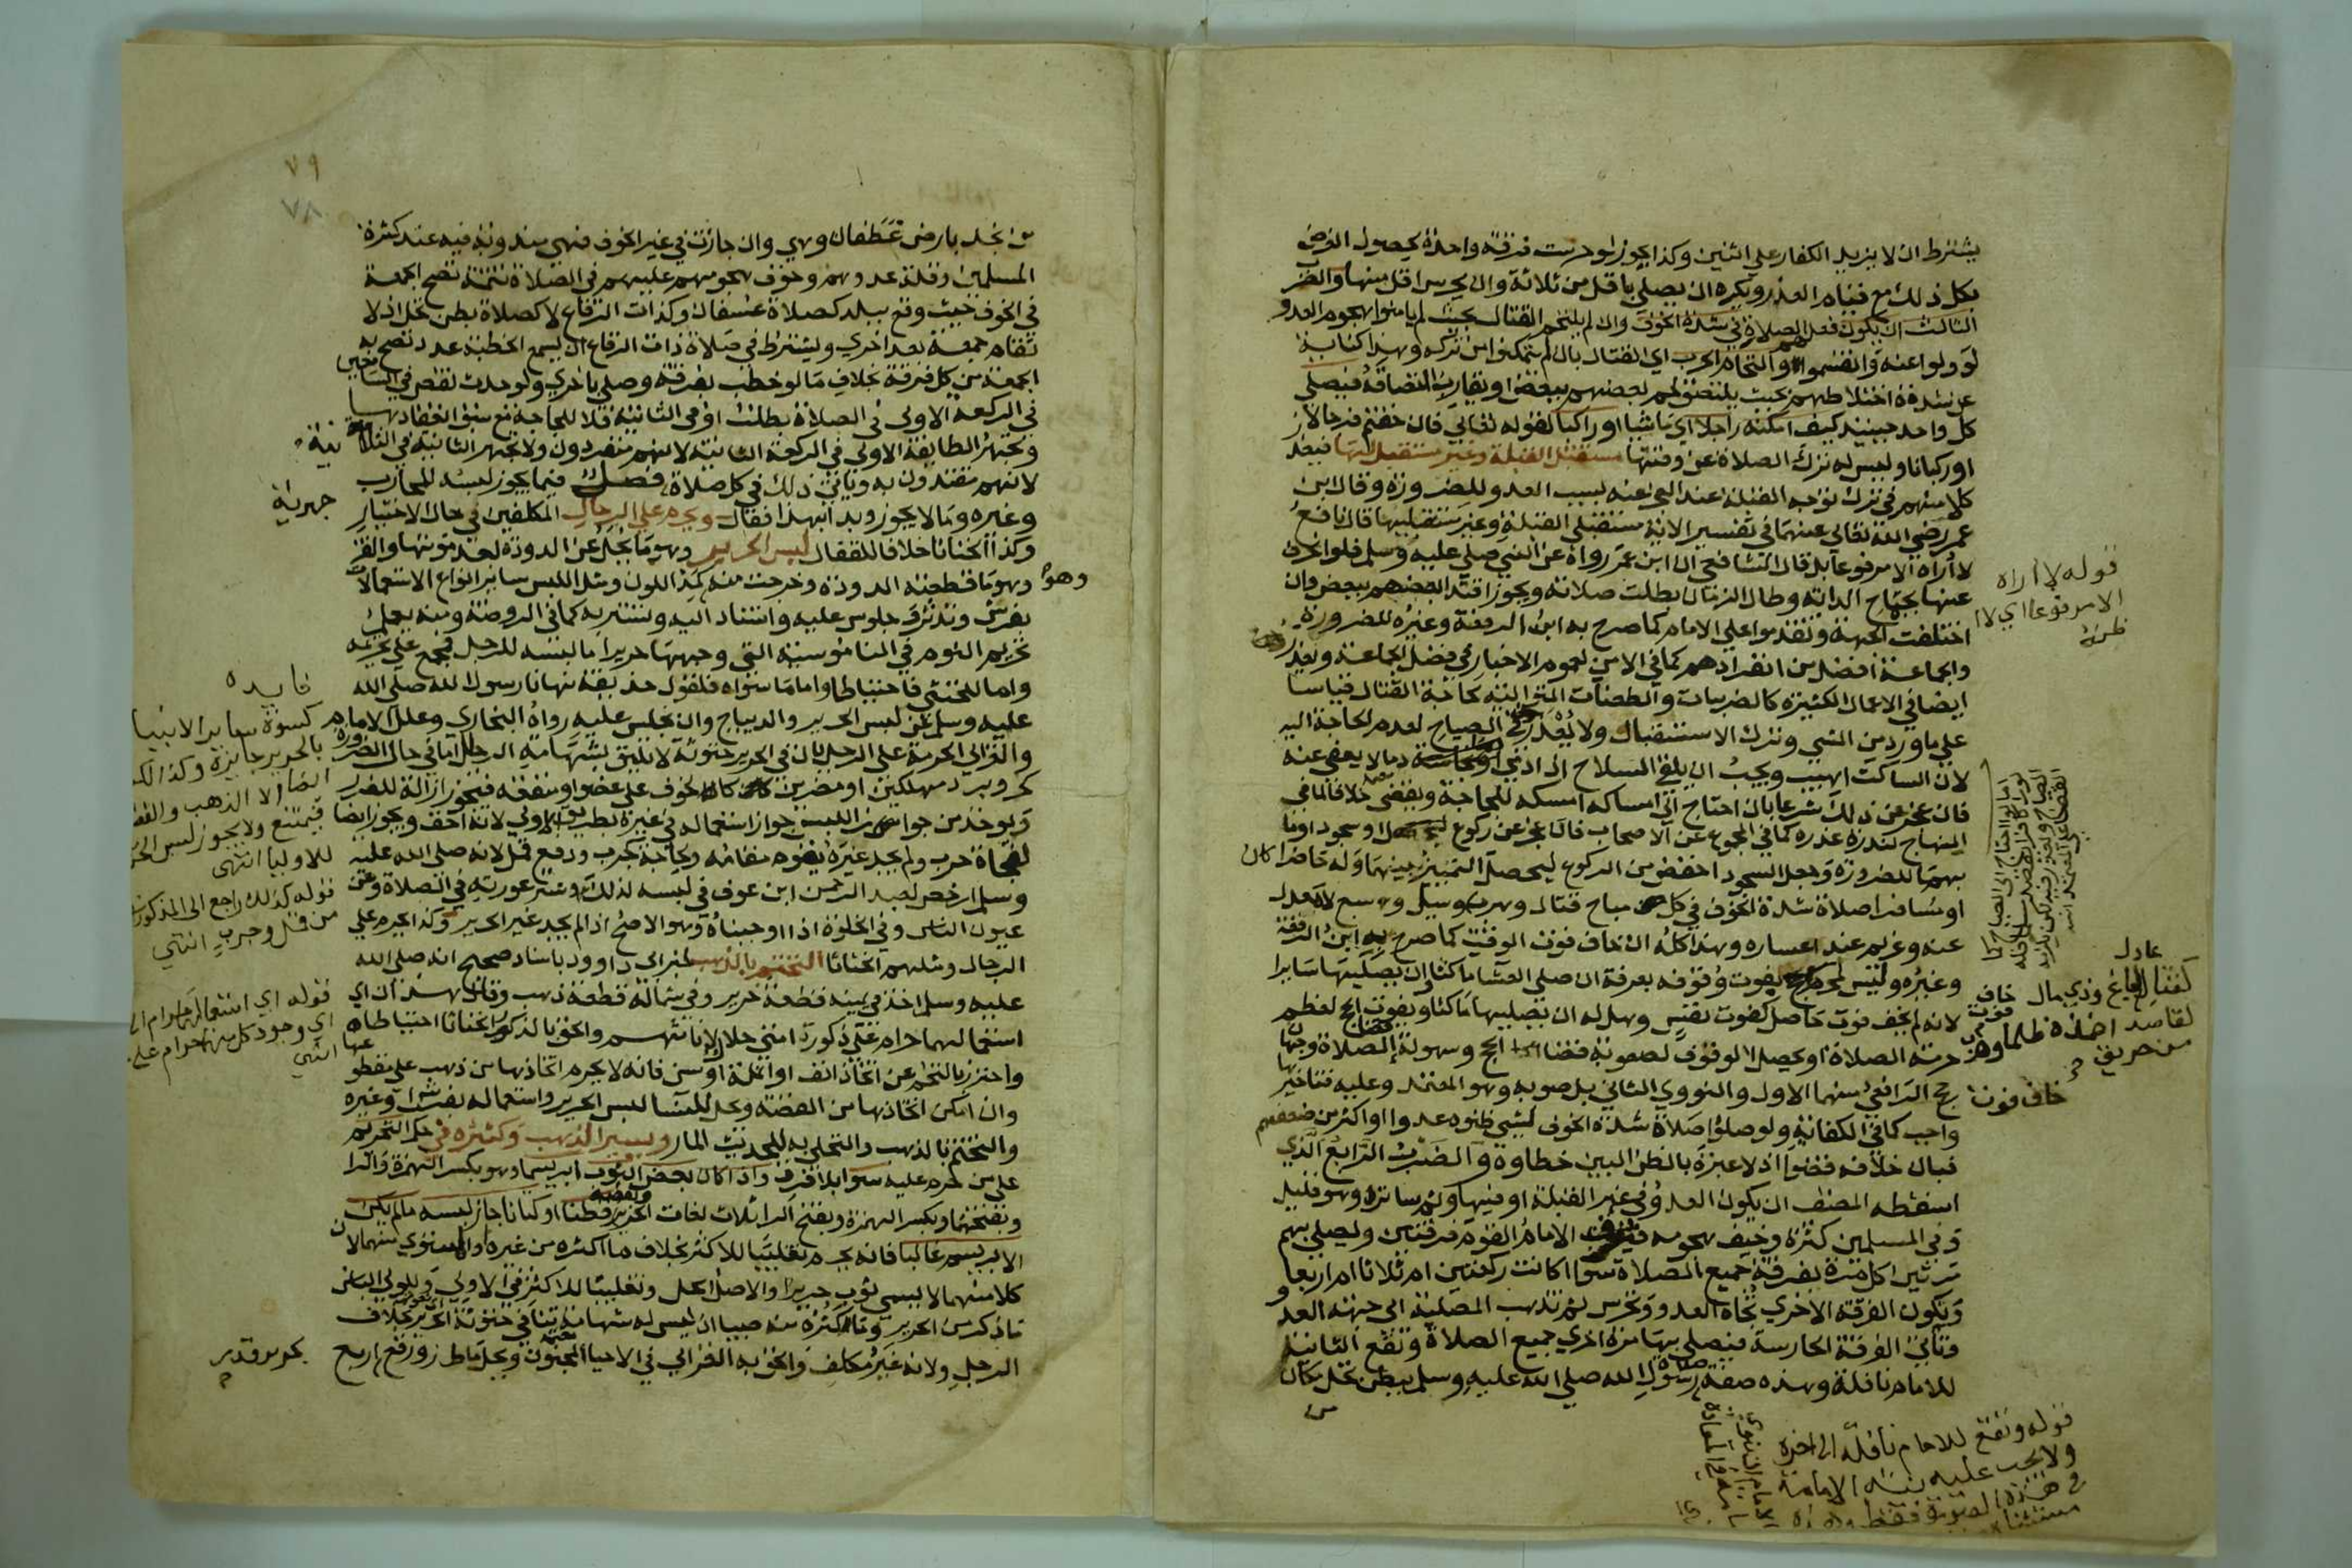 يشترط ان لا يزيد الكفار على اثنين وكذا يجوز لو حرست فرقة واحدة لحصول الغرض
بكل ذلك مع قيام العذر ويكره ان يصلي باقل من ثلاثة وان يحرس اقل منها والضرب
الثالث ان يكون فعل الصلاة في شدة الخوف وان لم يلتحم القتال بحيث لم يامنوا هجوم العدو
لو ولوا عنه وانقسموا والتحام الحرب اي القتال بان لم يتمكنوا من تركه وهذا كناية
عن شدة اختلاطهم بحيث يلتصق لحم بعضهم ببعض او يقارب التصاقه فيصلي
كل واحد حينيذ كيف امكنه راجلا اي ماشيا او راكبا لقوله تعالى فان خفتم فرجالا
او ركبانا وليس له ترك الصلاة عن وقتها مستقبل القبلة وغير مستقبل لها فيعذر
كل منهم في ترك توجه القبلة عند العجز عنه بسبب العدو للضرورة وقال ابن
عمر رضي الله تعالى عنهما في تفسير الاية مستقبلي القبلة وغير مستقبليها قال نافع
لا اراه الا مرفوعا بل قال الشافعي ان ابن عمر رواه عن النبي صلى عليه وسلم فلو انحرف
عنها بجماح الدابة وطال الزمان بطلت صلاته ويجوز اقتدا بعضهم ببعض وان
اختلفت الجهة وتقدموا على الامام كما صرح به ابن الرفعة وغيره للضرورة
والجماعة افضل من انفرادهم كما في الامن لعموم الاخبار في فضل الجماعة ويعذر
ايضا في الاعمال الكثيرة كالضربات والطعنات المتوالية لحاجة القتال قياسا
على ما ورد من المشي وترك الاستقبال ولا يعذر في الصياح لعدم الحاجة اليه
لان الساكت اهيب ويجب ان يلقي السلاح اذا دمي دما لا يعفى عنه
فان عجز عن ذلك شرعا بان احتاج الى امساكه امسكه للحاجة ويقضي خلافا لما في
المنهاج لندرة عذره كما في المجموع عن الاصحاب فان عجز عن ركوع او سجود اوما
بهما للضرورة وجعل السجود اخفض من الركوع ليحصل التمييز بينهما وله حاضرا كان
او مسافرا صلاة شدة الخوف في كل مباح قتال وهرب وسيل وسبع لا معدل
عنه وغريم عند اعساره وهذا كله ان خاف فوت الوقت كما صرح به ابن الرفعة
وغيره وليس لمحرم يفوت وقوفه بعرفة ان صلى العشا ماكثا ان يصليها سايرا
لانه لم يخف فوت حاصل كفوت نفس وهل له ان يصليها ماكثا ويفوت الحج لعظم
حرمة الصلاة او يحصل الوقوف لصعوبة قضا الحج وسهولة قضا الصلاة وجهان
رجح الرافعي منهما الاول والنووي الثاني بل صوبه وهو المعتمد وعليه فتاخيرها
واجب كما في الكفاية ولو صلوا صلاة شدة الخوف لشي ظنوه عدوا او اكثر من ضعفهم
فبان خلافه قضوا اذ لا عبرة بالظن البين خطاوه والضرب الرابع الذي
اسقطه المصنف ان يكون العدو في غير القبلة او فيها وثم ساتر وهو قليل
وفي المسلمين كثرة وخيف هجومه فيرتب الامام القوم فرقتين ويصلي بهم
مرتين كل مرة بفرقة جميع الصلاة سوا اكانت ركعتين ام ثلاثا ام اربعا
وتكون الفرقة الاخرى تجاه العدو وتحرس ثم تذهب المصلية الى جهة العدو
وتاتي الفرقة الحارسة فيصلي بها مرة اخرى جميع الصلاة وتقع الثانية
للامام نافلة وهذه صفة صلاة رسول الله صلى الله عليه وسلم ببطن نخل مكان
من
قوله لا اراه
الا مرفوعا اي لا
اظنه
خاف فوت
قوله وتقع للامام نافلة الى اخره
ولا يجب عليه نية الامامة
في هذه الصورة فقط
٧٩
٧٨
من نجد بارض غطفان وهي وان جازت في غير الخوف فهي مندوبة فيه عند كثرة
المسلمين وقلة عدوهم وخوف هجومهم عليهم في الصلاة تتمة تصح الجمعة
في الخوف حيث وقع ببلد كصلاة عسفان وكذات الرقاع لا كصلاة بطن نخل اذ لا
تقام جمعة بعد اخرى ويشترط في صلاة ذات الرقاع ان يسمع الخطبة عدد تصح به
الجمعة من كل فرقة بخلاف ما لو خطب بفرقة وصلى باخرى ولو حدث نقص في السامعين
في الركعة الاولى في الصلاة بطلت او في الثانية فلا للحاجة مع سبق انعقادها
وتجهر الطايفة الاولى في الركعة الثانية لانهم منفردون ولا تجهر الثانية في الثانية
لانهم مقتدون به وياتي ذلك في كل صلاة جهرية فصل فيما يجوز لبسه للمحارب
وغيره وما لا يجوز وبدا بهذا فقال ويحرم على الرجال المكلفين في حال الاختيار
وكذا الخناثا خلافا للقفال لبس الحرير وهو ما يحل عن الدودة بعد موتها والقز
وهو ما قطعته الدودة وخرجت منه كمد اللون ومثل اللبس ساير انواع الاستعمالات
بفرش وتدثر وجلوس عليه واستناد اليه وتستر به كما في الروضة ومنه يعلم
تحريم النوم في الناموسية التي وجهها حرير اما لبسه للرجل فمجمع على تحريمه
واما للخنثى فاحتياطا واما ما سواه فلقول حذيفة نهانا رسول الله صلى الله
عليه وسلم عن لبس الحرير والديباج وان نجلس عليه رواه البخاري وعلل الامام
والغزالي الحرمة على الرجل بان في الحرير خنوثة لا تليق بشهامة الرجال اما في حال الضرورة
كحر وبرد مهلكين او مضرين كالخوف على عضو او منفعة فيجوز ازالة للضرر
ويوخذ من جواز اللبس جواز استعماله في غيره بطريق الاولى لانه اخف ويجوز ايضا
لفجاة حرب ولم يجد غيره يقوم مقامه ولحاجة كجرب ودفع قمل لانه صلى الله عليه
وسلم ارخص لعبد الرحمن ابن عوف في لبسه لذلك وستر عورته في الصلاة وعن
عيون الناس وفي الخلوة اذا اوجبناه وهو الاصح اذا لم يجد غير الحرير وكذا يحرم على
الرجال ومثلهم الخناثا التختم بالذهب لخبر ابي داوود باسناد صحيح انه صلى الله
عليه وسلم اخذ في يمينه قطعة حرير وفي شماله قطعة ذهب وقال هذان اي
استعمالهما حرام على ذكور امتي حلال لاناثهم والحق بالذكور الخناثا احتياطا
واحترز بالتختم عن اتخاذ انف او انملة او سن فانه لا يحرم اتخاذها من ذهب على مقطوعها
وان امكن اتخاذها من الفضة وحل للنسا لبس الحرير واستعماله بفرش او غيره
والتختم بالذهب والتحلي به للحديث المار ويسير الذهب وكثيره في حكم التحريم
على من حرم عليه سوا بلا فرق واذا كان بعض الثوب ابريسما وهو بكسر الهمزة والرا
وبفتحهما وبكسر الهمزة وفتح الرا ثلاث لغات الحرير وبعضه قطنا او كتانا جاز لبسه ما لم يكن
الابريسم غالبا فانه يحرم تغليبا للاكثر بخلاف ما اكثره من غيره والمستوي منهما لان
كلا منهما لا يسمى ثوب حرير والاصل الحل وتغليبا للاكثر في الاولى وللولي الباس
ما ذكر من الحرير وما اكثره منه صبيا اذ ليس له شهامة تنافي خنوثة الحرير بخلاف
الرجل ولانه غير مكلف والحق به الغزالي في الاحيا المجنون ويحل ما طرز ورقع اربع
بحرير قدر
فايده
كسوة ساير الانبيا
بالحرير جايزة
الا الذهب
فيمتنع ولا يجوز لبس
للاوليا انتهى
قوله كذلك راجع الى المذكور
من قمل وجرب انتهى
قوله اي استعمالهما حرام
اي وجود كل منهما حرام
انتهى